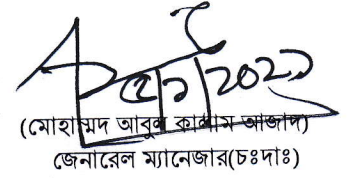 ২০২১
(মোহাম্মদ আবুল কালাম আজাদ)
জেনারেল ম্যানেজার(চঃদাঃ)